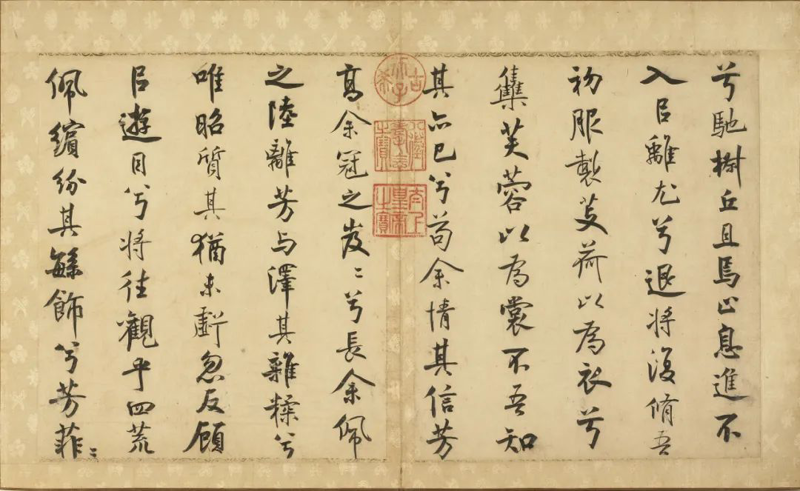 兮馳椒丘且焉止息進不
入㠯離尤兮退將復脩吾
初服製芰荷以為衣兮
集芙蓉以為裳不吾知
其亦已兮苟余情其信芳
古希天子
太上皇帝之寶
高余冠之岌〻兮長余佩
之陸離芳与澤其雜糅兮
唯昭質其猶未虧忽反顧
㠯遊目兮將往觀乎四荒
佩繽紛其繁飾兮芳菲〻